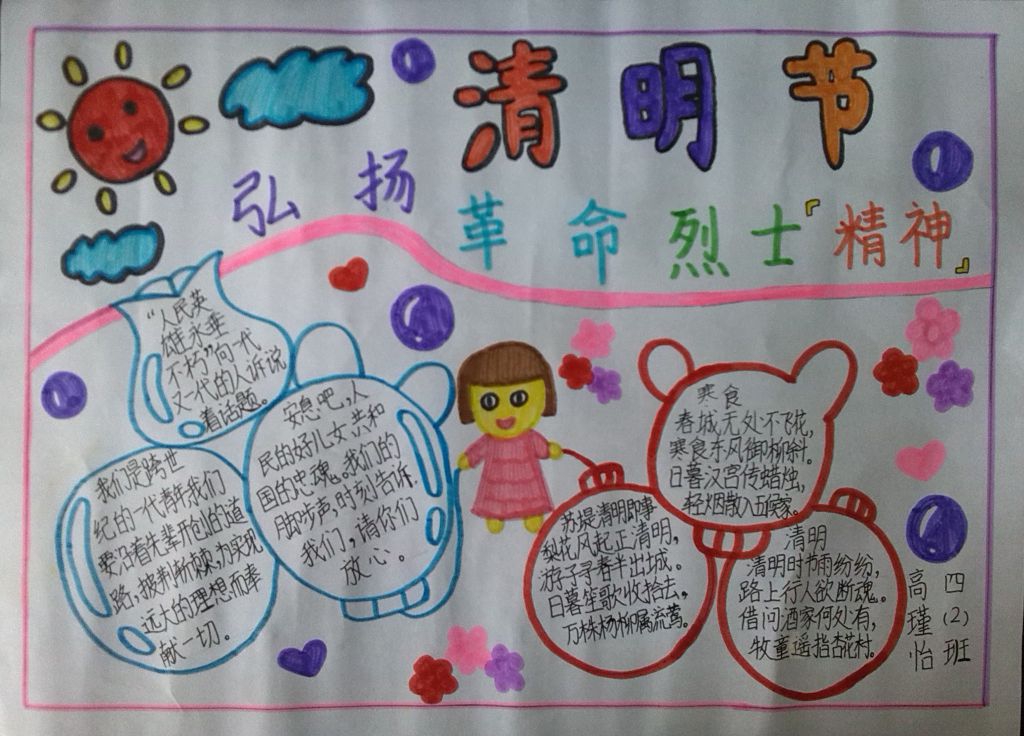 清明节
弘扬
革命烈士「精神」
“人民英
雄永垂
不朽”向一代
又一代的人诉说
着话题。
安息吧,人
民的好儿女,共和
国的忠魂。我们的
脚步声,时刻告诉
我们,请你们
放心。
我们是跨世
纪的一代青年我们
要沿着先辈开创的道
路,披荆斩棘,为实现
远大的理想而奉
献一切。
寒食
春城无处不飞花,
寒食东风御柳斜。
日暮汉宫传蜡烛,
轻烟散入五侯家。
苏堤清明即事
梨花风起正清明,
游子寻春半出城。
日暮笙歌收拾去,
万株杨柳属流莺。
清明
清明时节雨纷纷,
路上行人欲断魂。
借问酒家何处有,
牧童遥指杏花村。
四(2)班
高瑾怡